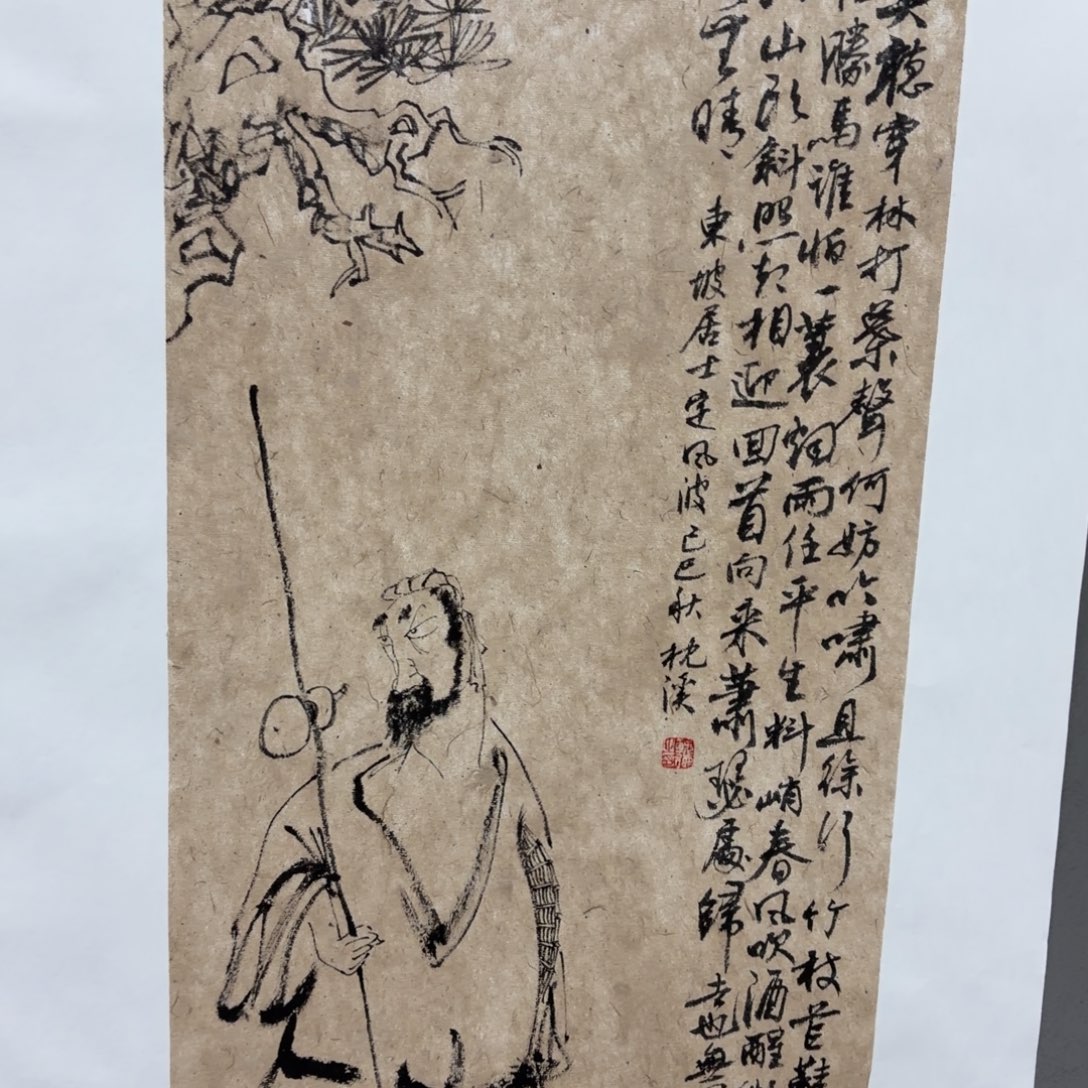 莫聽穿林打葉聲何妨吟嘯且徐行竹杖芒鞋
勝馬誰怕一蓑烟雨任平生料峭春風吹酒醒微
山頭斜照却相迎回首向来蕭瑟處歸去也無
無晴
東坡居士定風波己巳秋枕溪